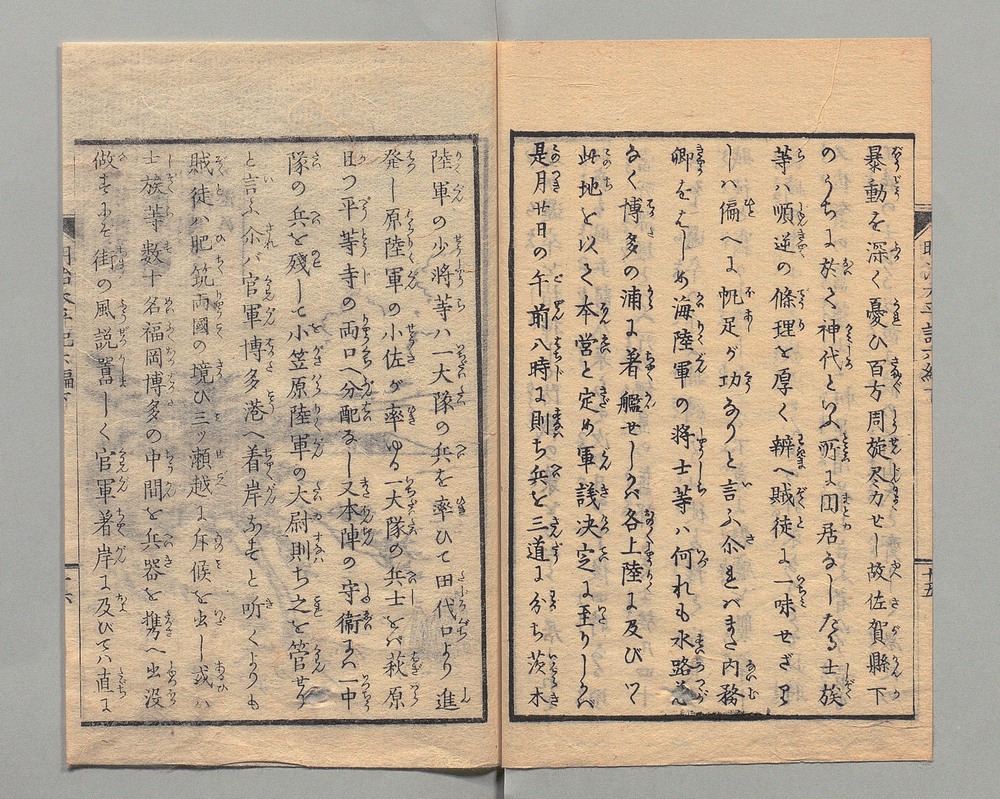 暴動を深く憂ひ百方周旋尽力せし故佐賀縣下
のうちに於て神代といふ所に囲居なしたる士族
等ハ順逆の條理を厚く辨へ賊徒に一味せざり
しハ偏へに帆足が功なりと言ふ尒るにまた内務
卿をはじめ海陸軍の将士等ハ何れも水路恙
なく博多の浦に着艦せしかバ各上陸に及びて
此地を以て本営と定め軍議決定に至りしかバ
是月廿日の午前八時に則ち兵を三道に分ち茨木
陸軍の少将等ハ一大隊の兵を率ひて田代口より進
発し原陸軍の小佐が率ゆる一大隊の兵士をバ萩原
且つ平等寺の両口へ分配なし又本陣の守衞にハ一中
隊の兵を残して小笠原陸軍の大尉則ち之を管せり
と言ふ尒バ官軍博多港へ着岸なすと听くよりも
賊徒ハ肥筑両國の境ひ三ッ瀬越に斥候を出し或ハ
士族等数十名福岡博多の中間を兵器を携へ出没
做すにぞ街の風説囂しく官軍着岸に及びてハ直に
明治太平記六編
十五
十六